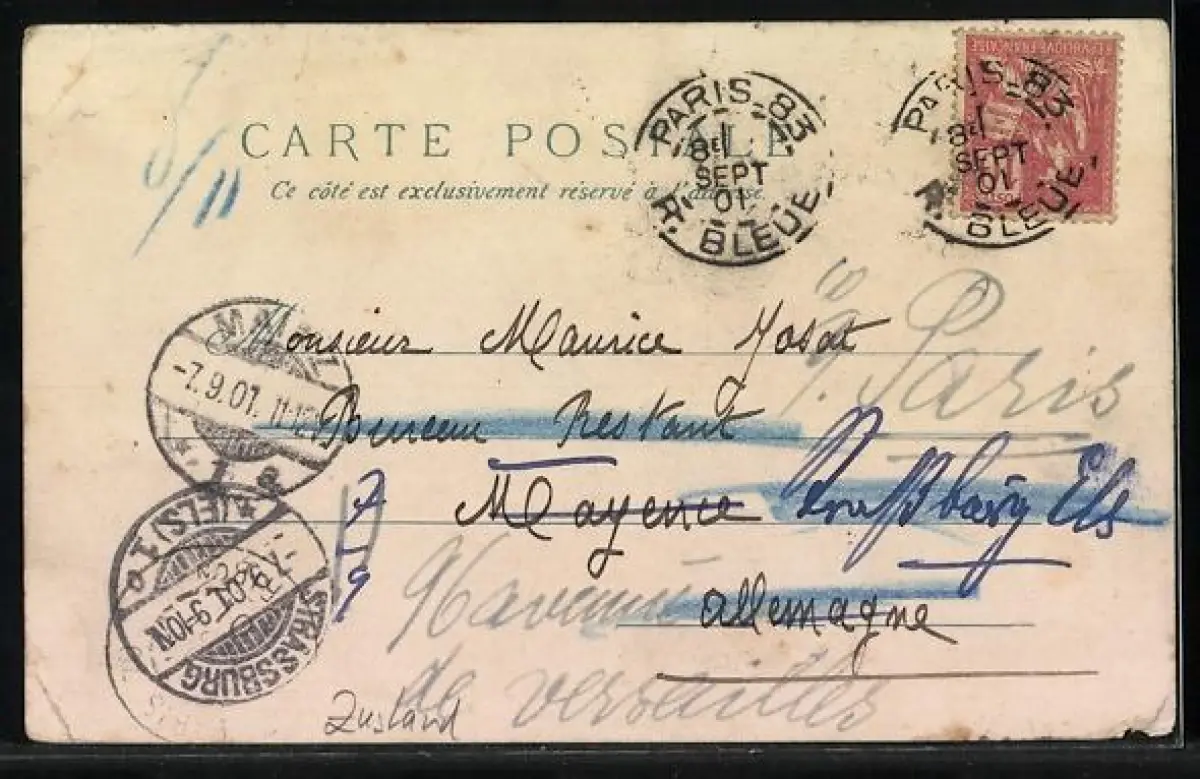 RÉPUBLIQUE FRANÇAISE
CARTE POSTALE
Ce côté est exclusivement réservé à l'adresse.
PARIS-83
8E
SEPT
01
R. BLEUE
PARIS-83
8E
SEPT
01
R. BLEUE
5/11
à Paris
Monsieur Maurice Josat
-7.9.01. 11-12
Bureau Restant
Mayence Straßburg Els
7/9
STRASSBURG
*(ELS)1
9-10N.
Allemagne
9 avenue
de versailles
Zustand